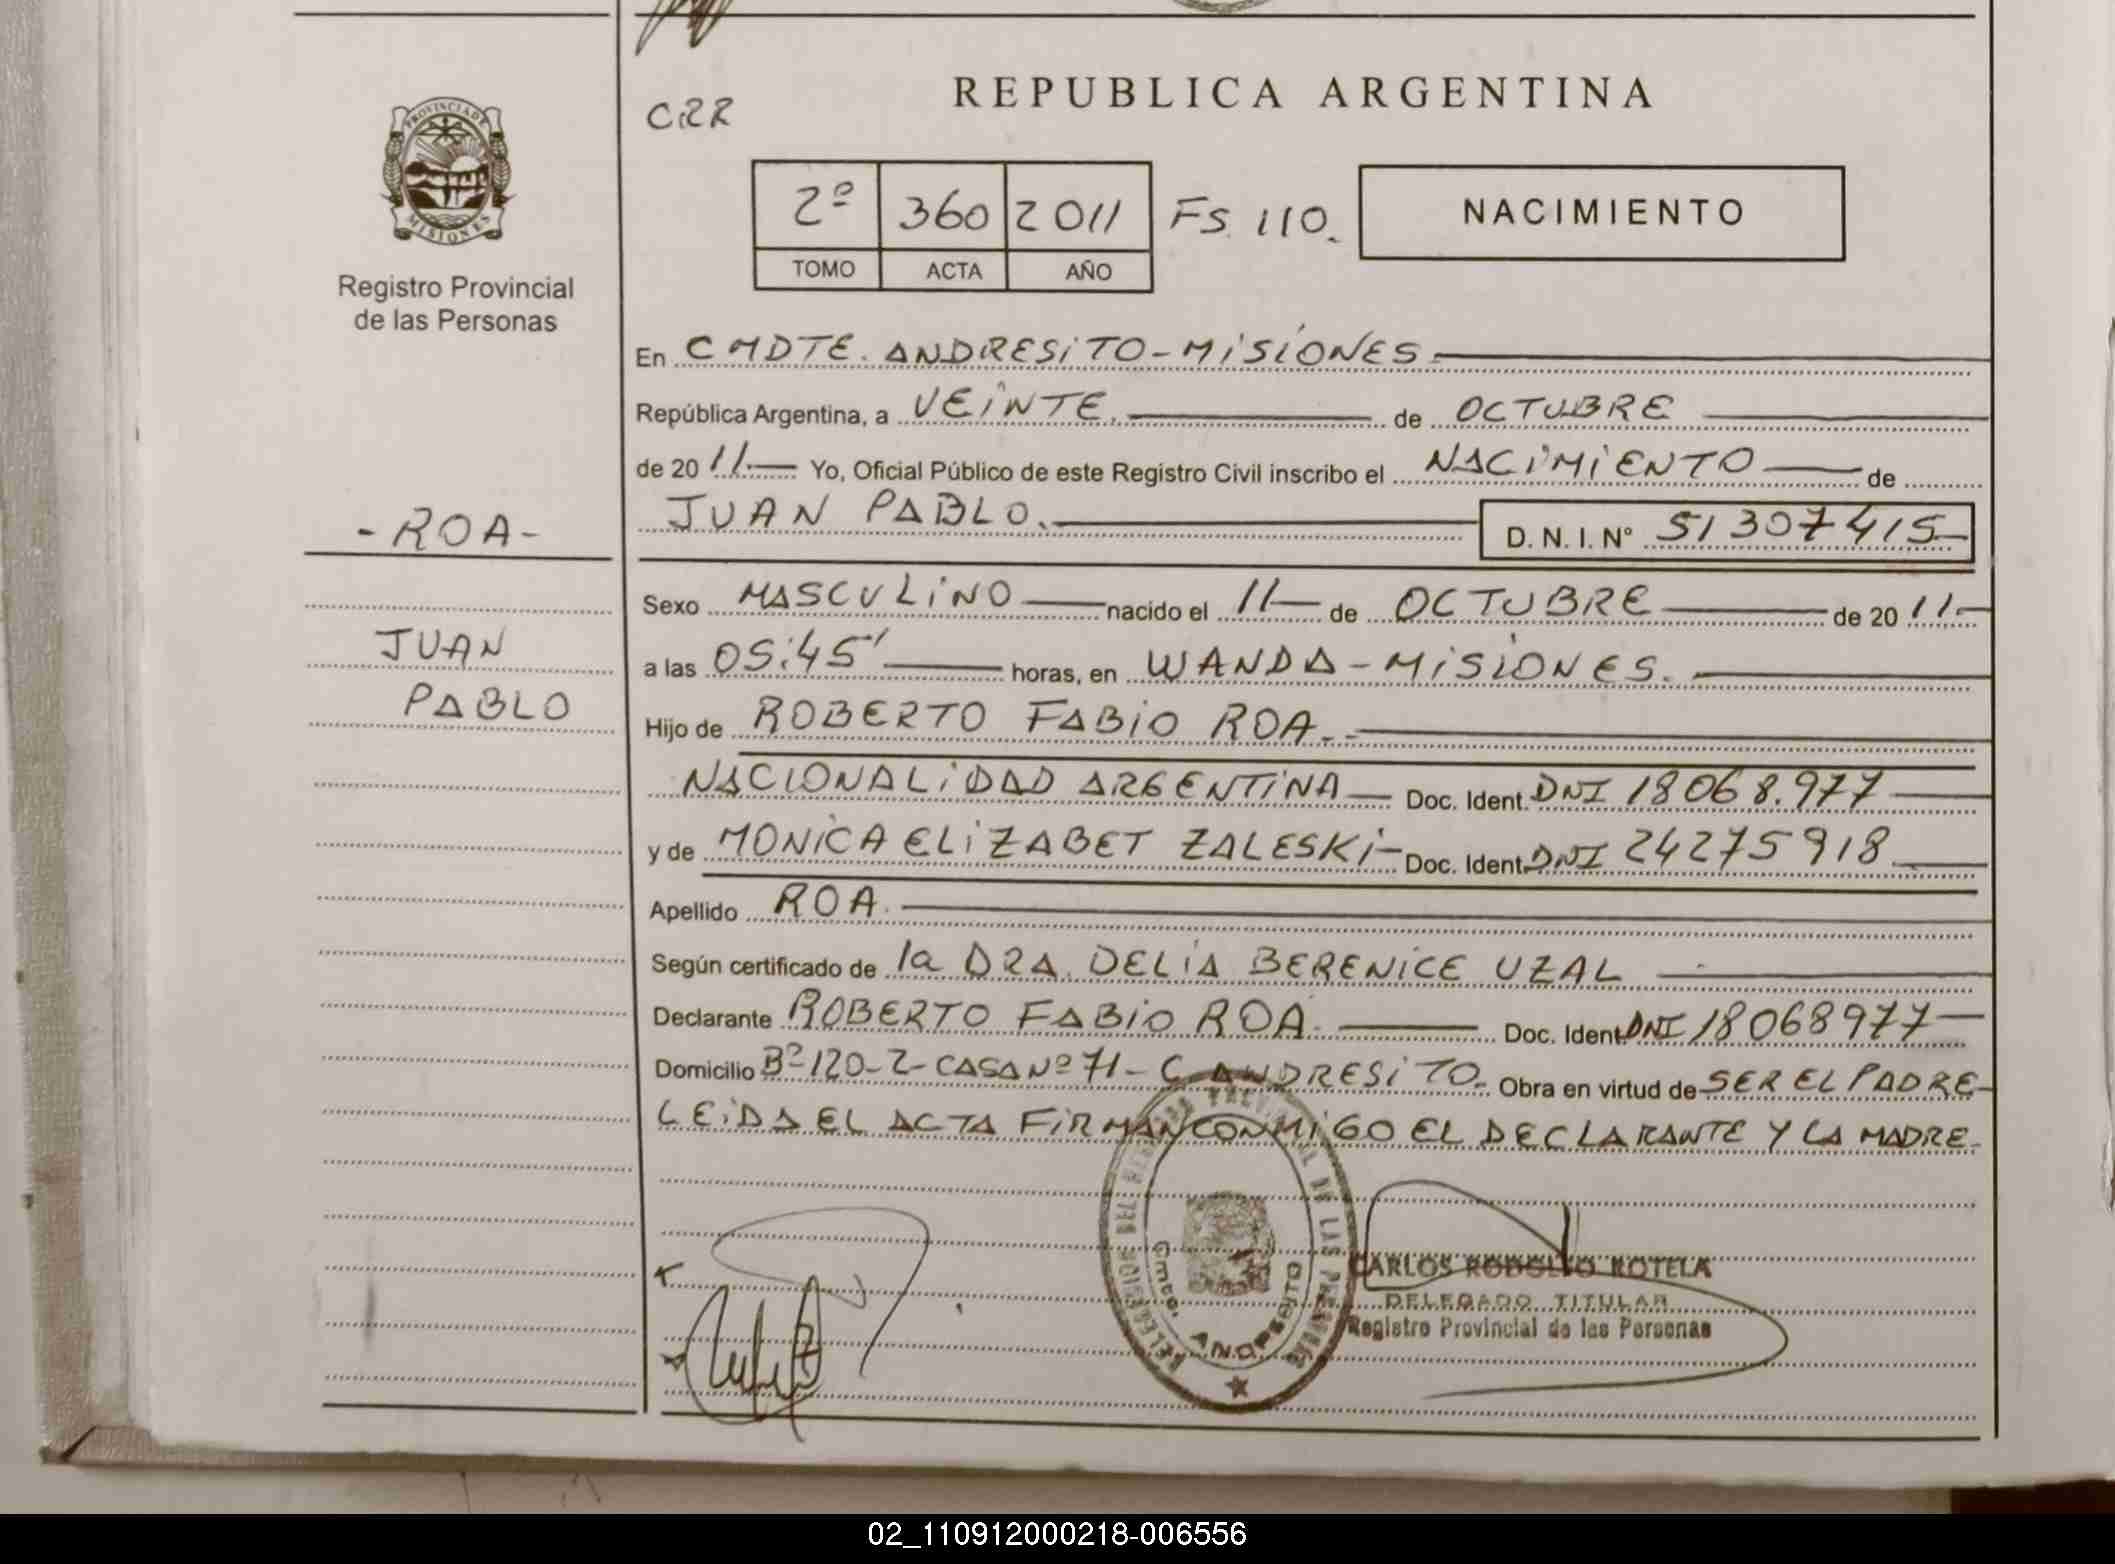 REPUBLICA ARGENTINA
CRR
PROVINCIA DE
MISIONES
Registro Provincial
de las Personas
2º 360 2011 FS. 110.
TOMO ACTA AÑO
NACIMIENTO
En CMDTE. ANDRESITO - MISIONES
República Argentina, a VEINTE. de OCTUBRE
de 20 11 Yo, Oficial Público de este Registro Civil inscribo el NACIMIENTO de
JUAN PABLO. D. N. I. Nº 51307415
- ROA -
JUAN
PABLO
Sexo MASCULINO nacido el 11 de OCTUBRE de 20 11
a las 05:45' horas, en WANDA - MISIONES.
Hijo de ROBERTO FABIO ROA.
NACIONALIDAD ARGENTINA Doc. Ident. DNI 18068.977
y de MONICA ELIZABET ZALESKI Doc. Ident. DNI 24275918
Apellido ROA.
Según certificado de la DRA. DELIA BERENICE UZAL
Declarante ROBERTO FABIO ROA. Doc. Ident. DNI 18068977
Domicilio Bº 120-2- CASA Nº 71 - C. ANDRESITO. Obra en virtud de SER EL PADRE
LEIDA EL ACTA FIRMAN CONMIGO EL DECLARANTE Y LA MADRE.
CARLOS RODOLFO ROTELA
DELEGADO TITULAR
Registro Provincial de las Personas
02_110912000218-006556